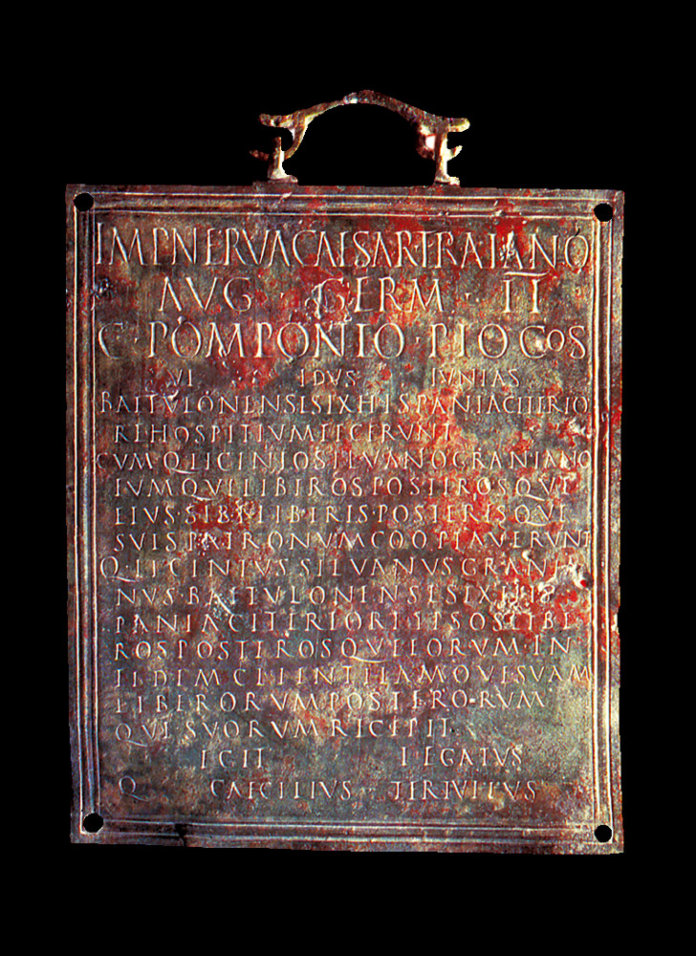 IMP NERVA CAESARE TRAIANO
AVG GERM II
C · POMPONIO · PIO COS
VI IDVS IVNIAS
BAETVLONENSES EX HISPANIA CITERIO
RE HOSPITIVM FECERVNT
CVM Q LICINIO SILVANO GRANIANO
EVMQVE LIBEROS POSTEROSQVE
EIVS SIBI LIBERIS POSTERISQVE
SVIS PATRONVM COOPTAVERVNT
Q LICINIVS SILVANVS GRANIA
NVS BAETVLONENSES EX HIS
PANIA CITERIORE IPSOS LIBE
ROS POSTEROSQVE EORVM IN
FIDEM CLIENTELAMQVE SVAM
LIBERORVM POSTERORVM
QVE SVORVM RECEPIT
EGIT LEGATVS
Q CAECILIVS TERTVLLVS